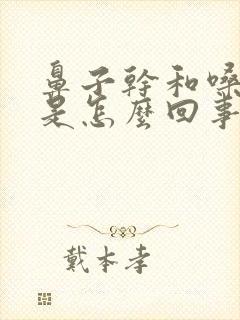 鼻子幹和嗓
是怎麼回事
戴本孝